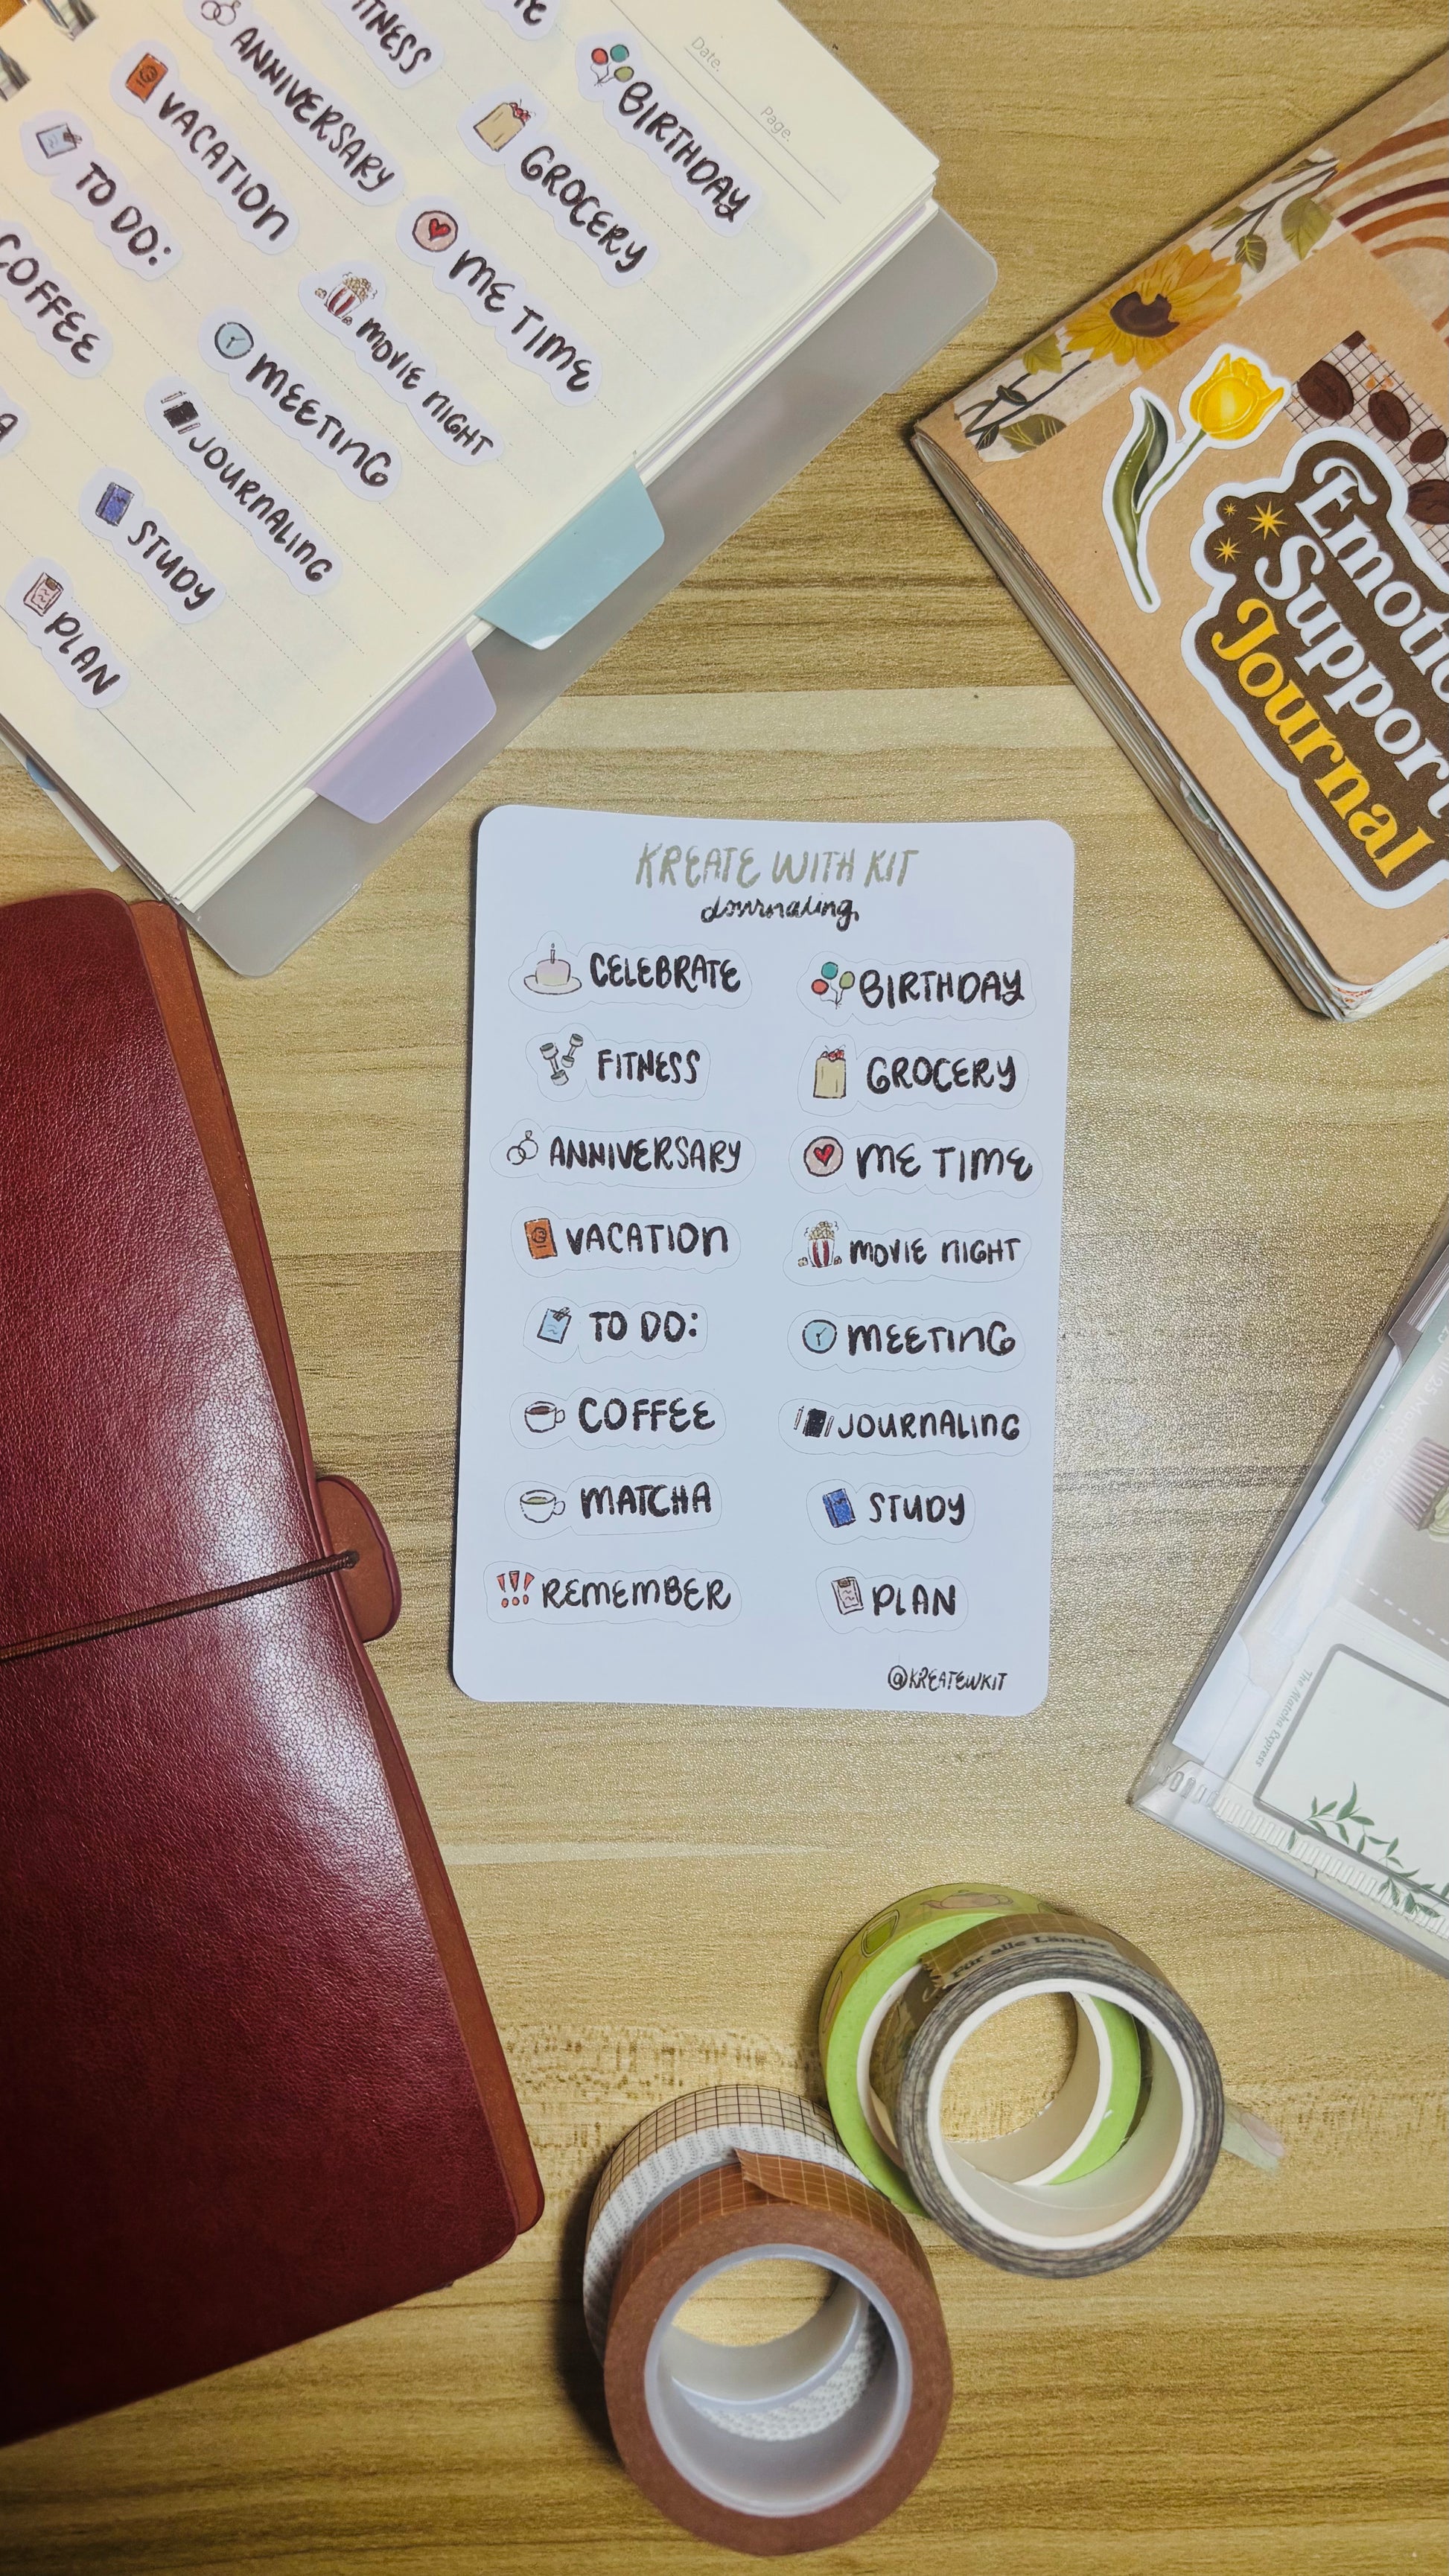 Date.
Page.
BIRTHDAY
GROCERY
ME TIME
ANNIVERSARY
MOVIE NIGHT
VACATION
MEETING
TO DO:
JOURNALING
COFFEE
STUDY
PLAN
Support
Journal
KREATE WITH KIT
Journaling
CELEBRATE
BIRTHDAY
FITNESS
GROCERY
ANNIVERSARY
ME TIME
VACATION
MOVIE NIGHT
TO DO:
MEETING
COFFEE
JOURNALING
MATCHA
STUDY
!!! REMEMBER
PLAN
@KREATEWKIT
The Matcha Express
Für alle Länder